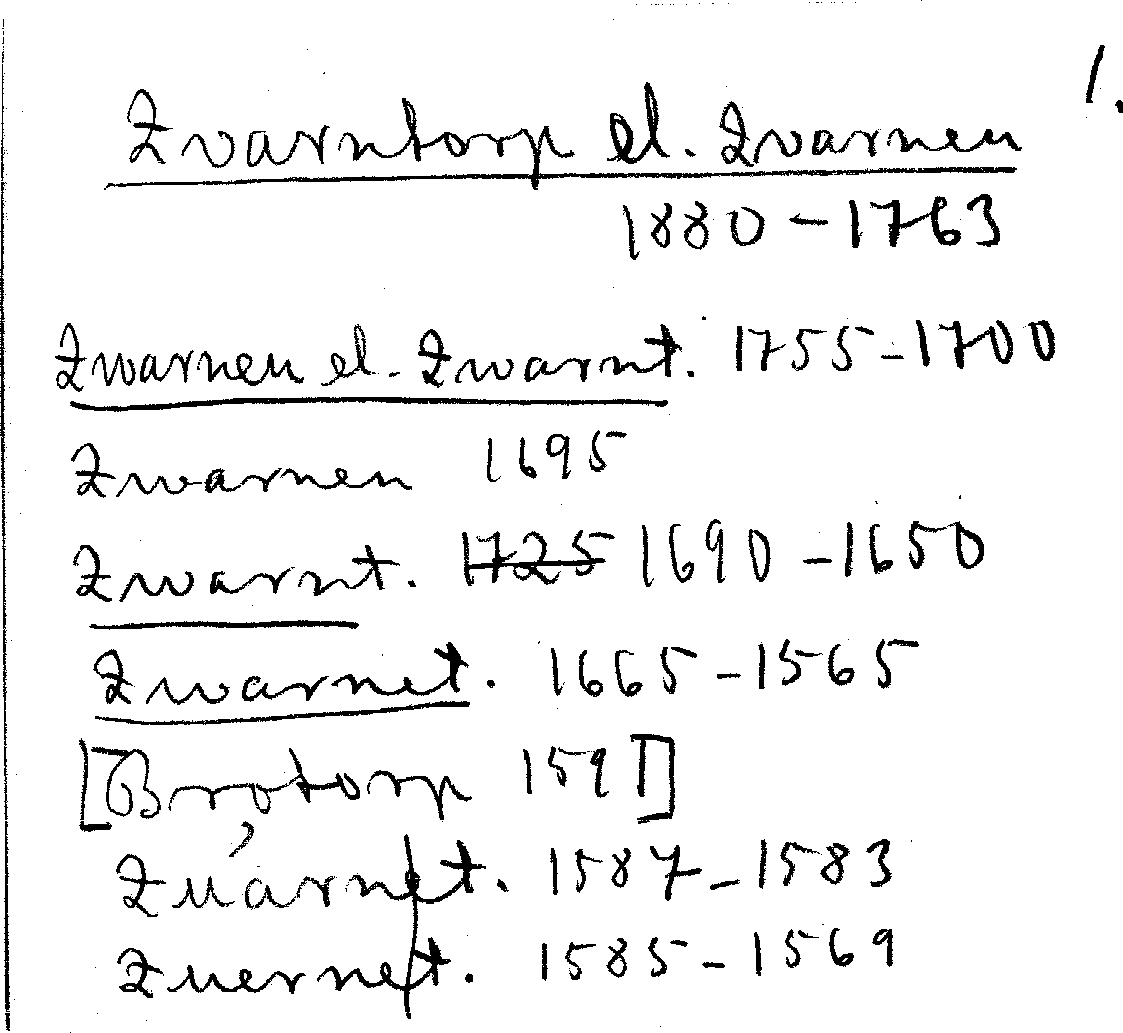 1.
Qvarntorp el. Qvarnen
1880 – 1763
Qwarnen el. Qwarnt. 1755 – 1700
Qwarnen 1695
Qwarnt. 1725 1690 – 1650
Qwarnet. 1665 – 1565
[Brotorp 1591]
Quarnet. 1587 – 1583
Quernet. 1585 – 1569